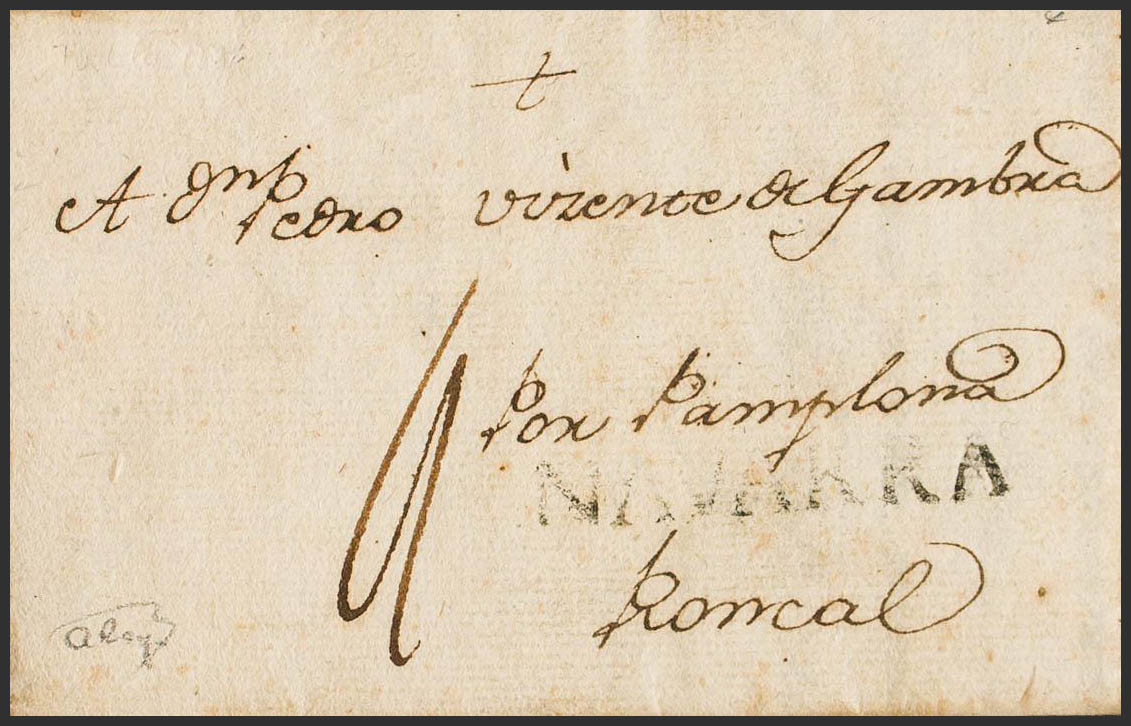 A Dn Pedro vizente de Gambra
Por Pamplona
NAVARRA
Roncal